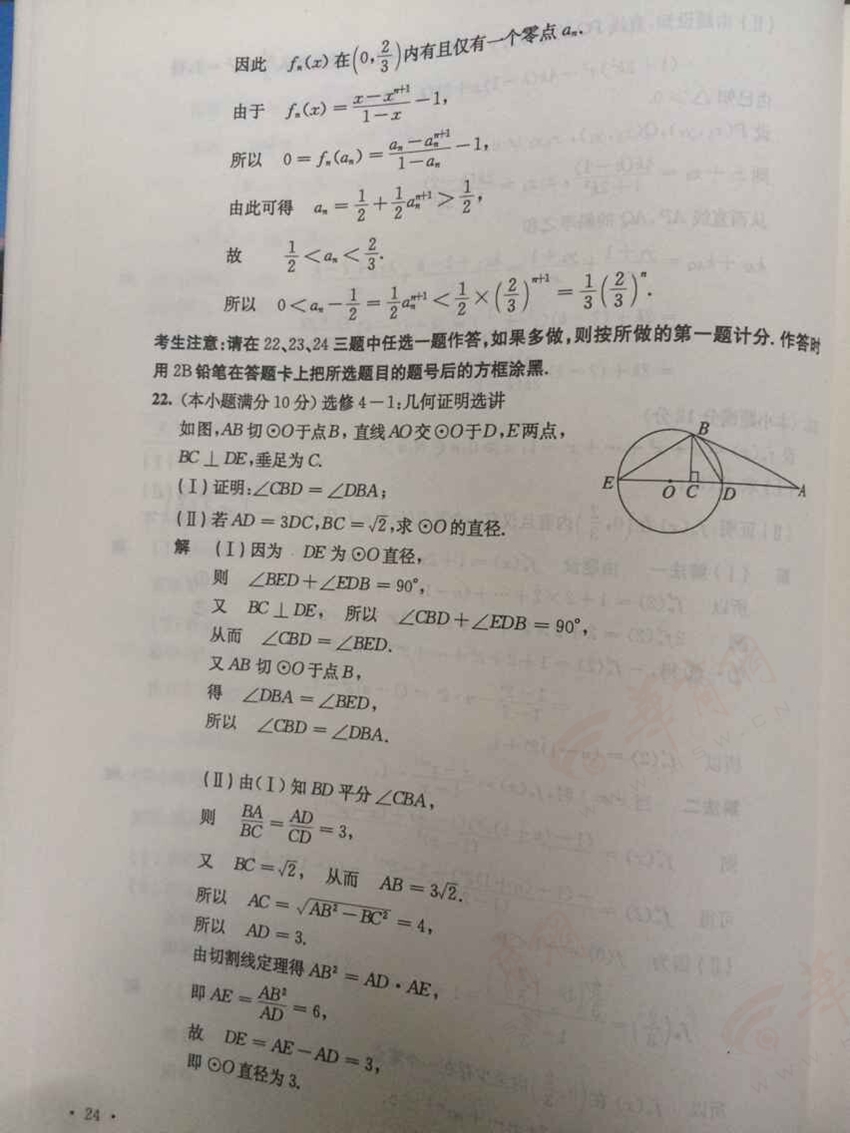 因此 fₙ(x)在(0,2/3)内有且仅有一个零点 aₙ.
由于 fₙ(x)=(x-xⁿ⁺¹)/(1-x)-1,
所以 0=fₙ(aₙ)=(aₙ-aₙⁿ⁺¹)/(1-aₙ)-1,
由此可得 aₙ=1/2+1/2aₙⁿ⁺¹>1/2,
故 1/2<aₙ<2/3.
所以 0<aₙ-1/2=1/2aₙⁿ⁺¹<1/2×(2/3)ⁿ⁺¹=1/3(2/3)ⁿ.
考生注意:请在 22、23、24 三题中任选一题作答,如果多做,则按所做的第一题计分.作答时
用 2B 铅笔在答题卡上把所选题目的题号后的方框涂黑.
22. (本小题满分 10 分) 选修 4-1:几何证明选讲
如图,AB 切⊙O于点B,直线AO交⊙O于D,E两点,
BC⊥DE,垂足为 C.
(Ⅰ)证明:∠CBD=∠DBA;
(Ⅱ)若 AD=3DC,BC=√2,求⊙O的直径.
B
E O C D A
解 (Ⅰ)因为 DE 为⊙O直径,
则 ∠BED+∠EDB=90°,
又 BC⊥DE, 所以 ∠CBD+∠EDB=90°,
从而 ∠CBD=∠BED.
又 AB 切⊙O于点B,
得 ∠DBA=∠BED,
所以 ∠CBD=∠DBA.
(Ⅱ)由(Ⅰ)知 BD 平分∠CBA,
则 BA/BC=AD/CD=3,
又 BC=√2, 从而 AB=3√2.
所以 AC=√(AB²-BC²)=4,
所以 AD=3.
由切割线定理得 AB²=AD·AE,
即 AE=AB²/AD=6,
故 DE=AE-AD=3,
即⊙O直径为3.
·24·